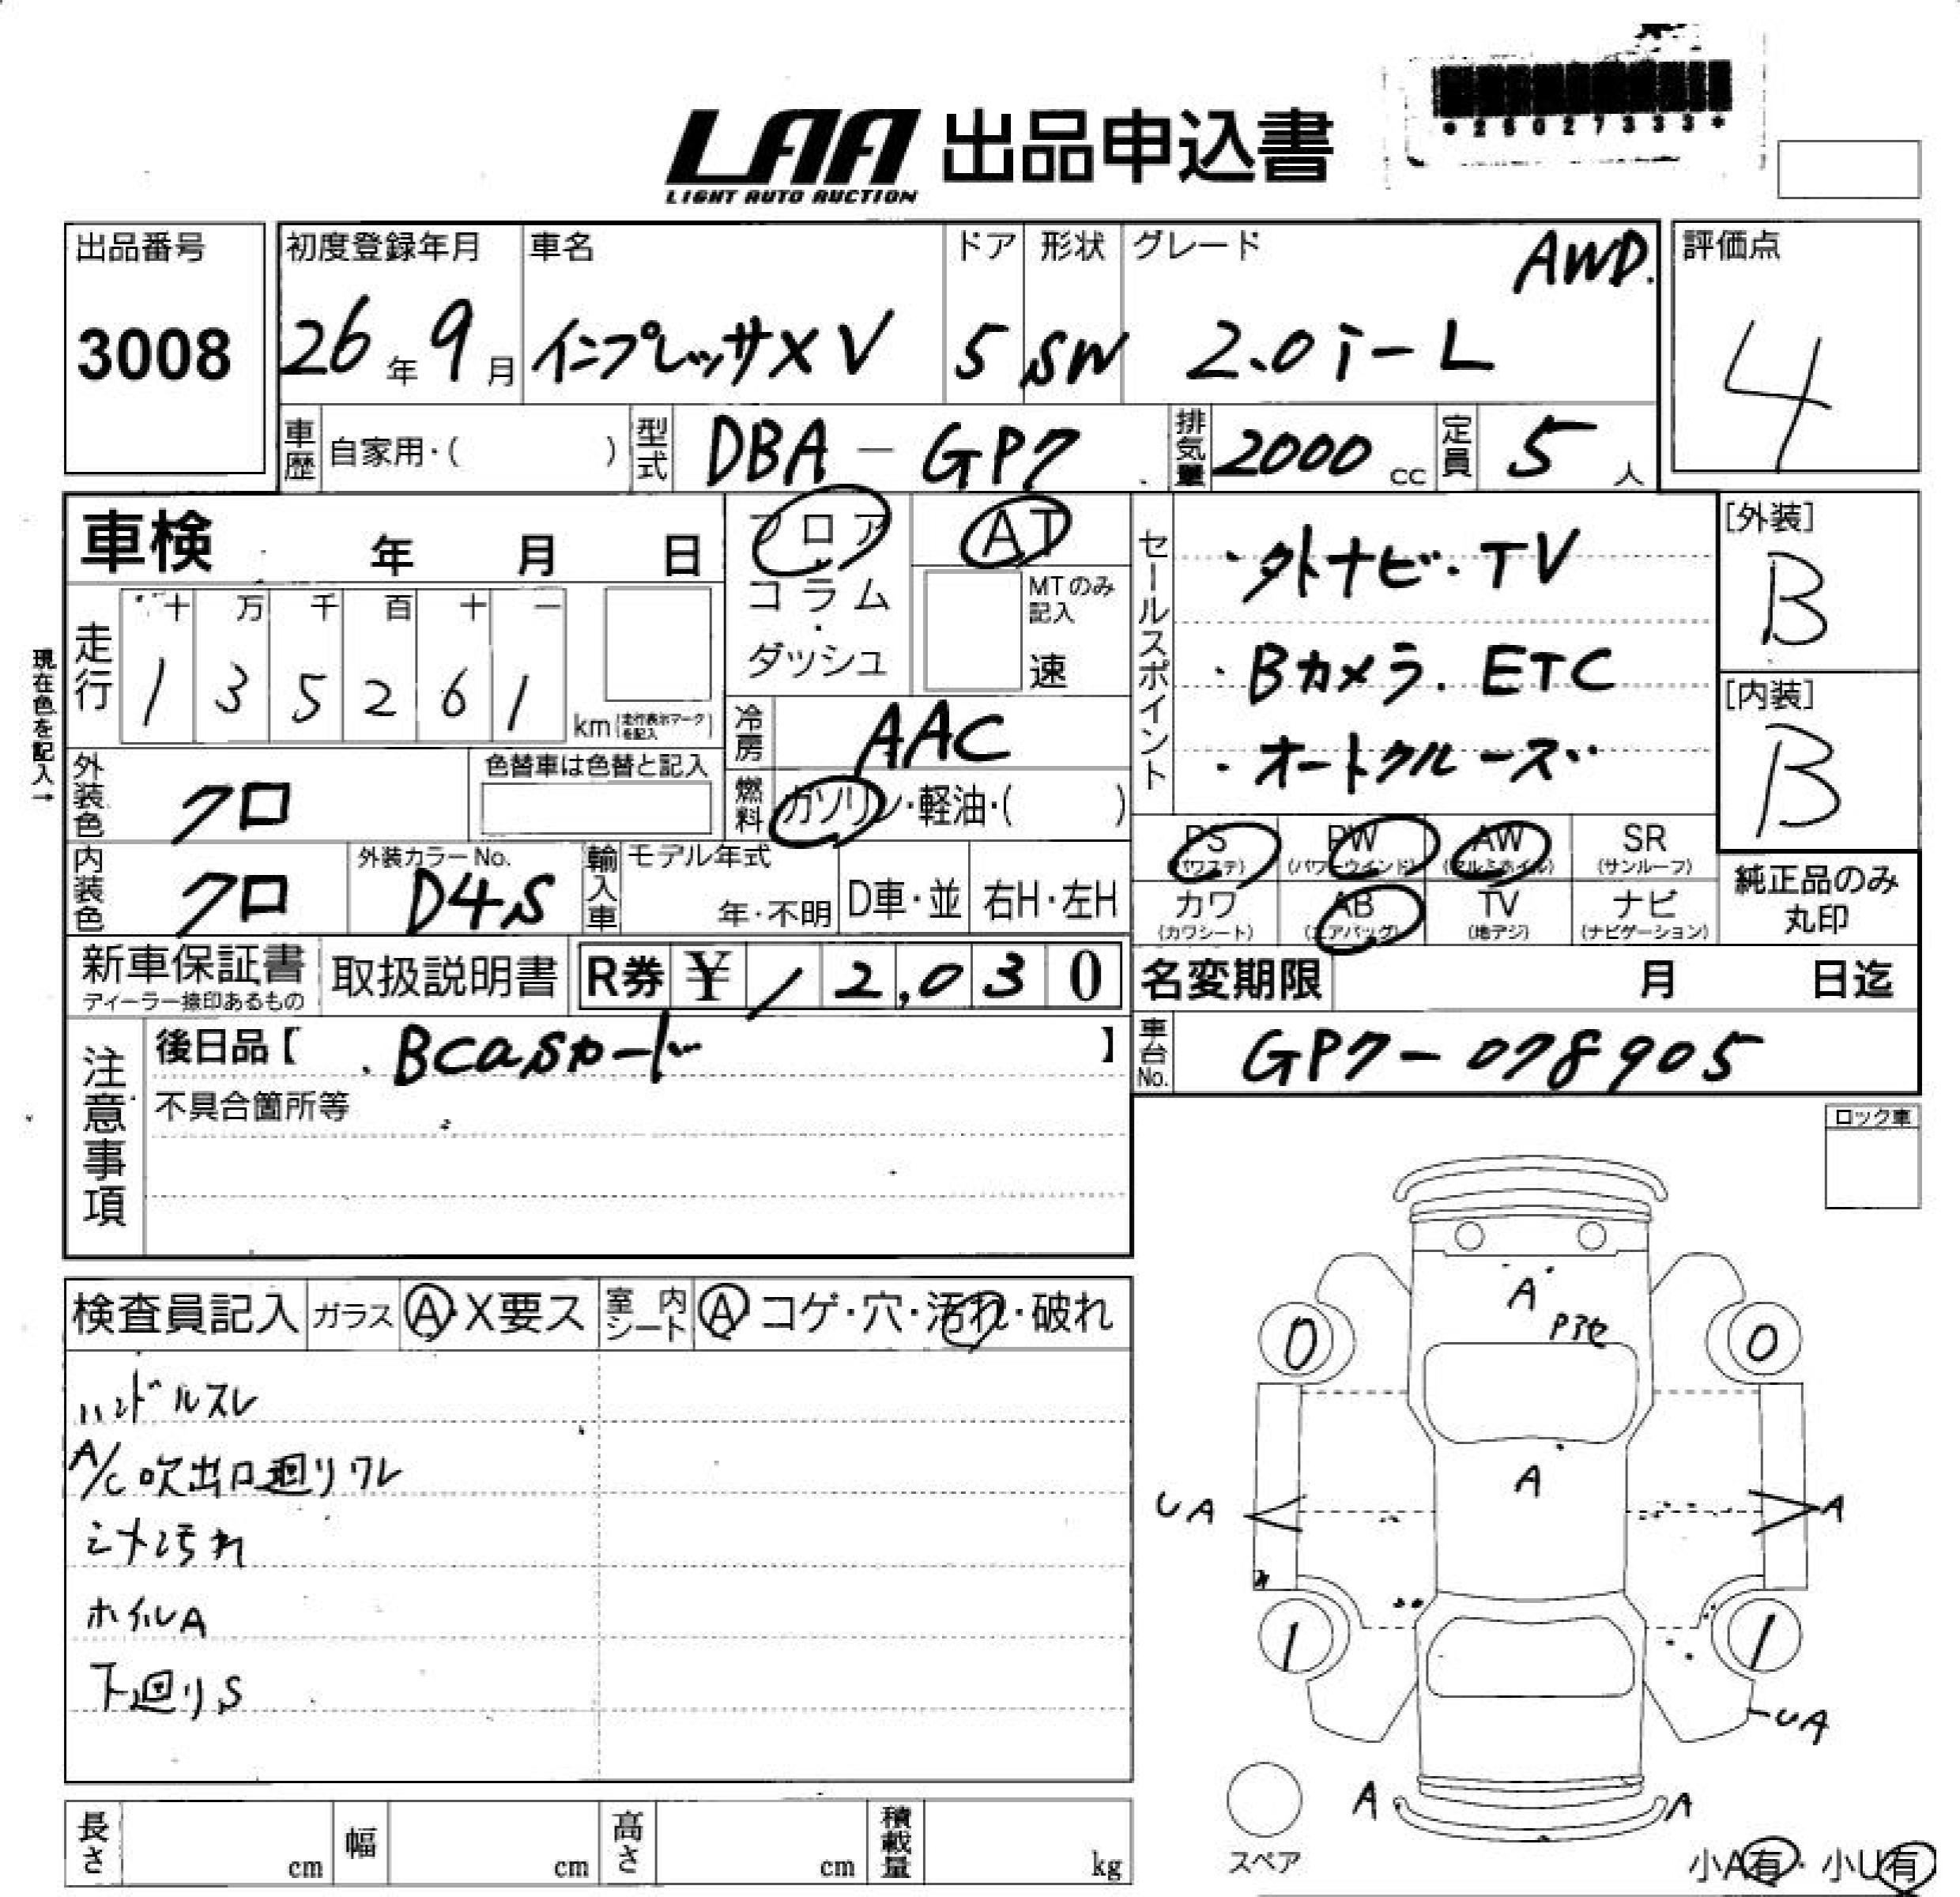 *26027333*
LAA 出品申込書
LIGHT AUTO AUCTION
出品番号 初度登録年月 車名 ドア 形状 グレード AWD. 評価点
3008 26年 9月 インプレッサXV 5 SW 2.0i-L 4
車歴 自家用・( ) 型式 DBA-GP7 排気量 2000cc 定員 5人
車検 年 月 日 フロア AT
コラム・ダッシュ MTのみ記入 速
セールスポイント
・外ナビ・TV
・Bカメラ.ETC
・オートクルーズ
[外装] B
[内装] B
現在色を記入→
走行 十 万 千 百 十 一
1 3 5 2 6 1 km (走行表示マークを記入)
冷房 AAC
外装色 クロ 色替車は色替と記入
燃料 ガソリン・軽油・( )
PS (パワステ) PW (パワーウインド) AW (アルミホイル) SR (サンルーフ)
カワ (カワシート) AB (エアバッグ) TV (地デジ) ナビ (ナビゲーション)
純正品のみ丸印
内装色 クロ 外装カラーNo. D4S 輸入車 モデル年式 年・不明 D車・並 右H・左H
新車保証書 ディーラー捺印あるもの 取扱説明書 R券 ¥ 12,030
名変期限 月 日迄
車台No. GP7-078905
注意事項
後日品【 .Bcasカード 】
不具合箇所等
ロック車
検査員記入 ガラス A・X要ス 室内シート A・コゲ・穴・汚れ・破れ
ハンドルスレ
A/C吹出口廻りワレ
シート汚れ
ホイルA
下廻りS
A
0 0
A
UA A
1 1
UA
A A
スペア
小A有・小U有
長さ cm 幅 cm 高さ cm 積載量 kg